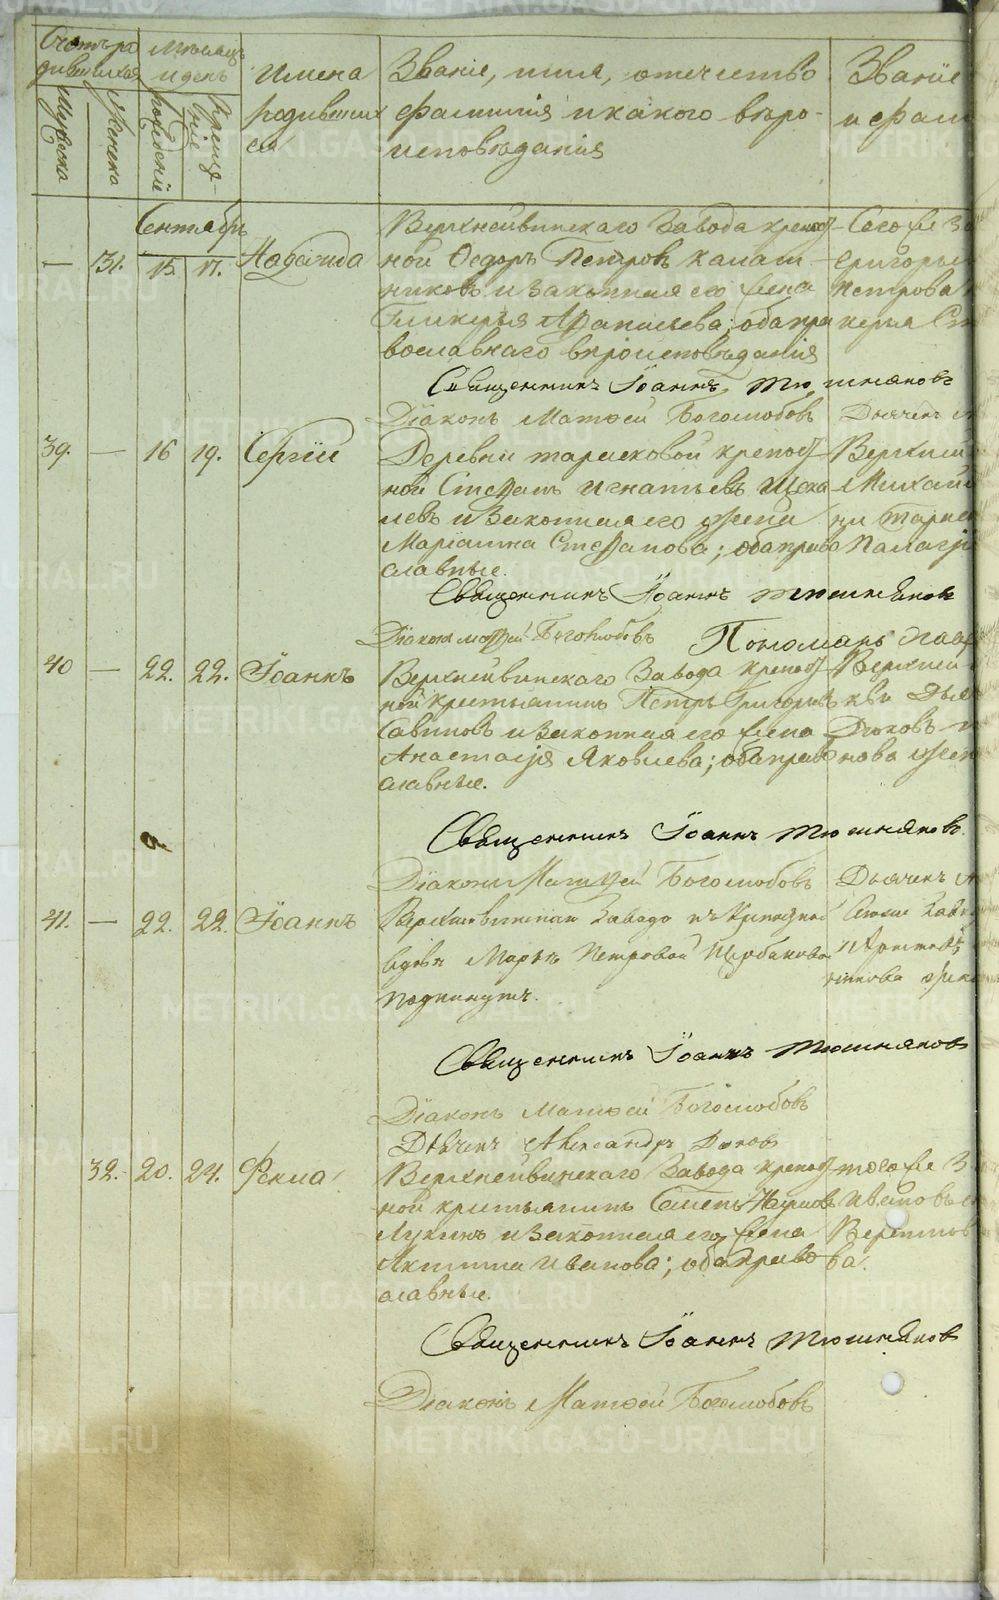 Счетъ ро
дившихся
Мѣсяцъ
и день
Имена
родивших
ся
Званіе, имя, отечество
фамилія и какого вѣро-
исповѣданія
Званіе
и фам
Мужеска
Женска
рожденія
крещенія
Сентябрь
— 31. 15. 17. Надежда
Верхнейвинскаго Завода крепост-
ной Ѳедоръ Петровъ Калаш
никовъ и законная его жена
Гликерья Афанасьева; оба пра
вославнаго вѣроисповѣданія
Того же За
Григорьи
Петрова
керья Ст
Священникъ Іоаннъ Тюшняковъ
Діаконъ Матѳей Боголюбовъ Дьячекъ
39. — 16 19. Сергій
Деревни Тарасковой крепост-
ной Стефанъ Игнатьевъ Щека
левъ и законная его жена
Маріамна Стефанова; оба право
славные.
Верхней
Михай
ни Тарас
Палагія
Священникъ Іоаннъ Тюшняковъ
Діаконъ Матѳей Боголюбовъ Пономарь
40 — 22. 22. Іоаннъ
Верхнейвинскаго Завода крепост-
ной крестьянинъ Петръ Григорьевъ
Савиновъ и законная его жена
Анастасія Яковлева; оба право
славные.
Верхней-
кви Дья
Дюковъ
нова жен
Священникъ Іоаннъ Тюшняковъ
Діаконъ Матѳей Боголюбовъ Дьячекъ
41. — 22. 22. Іоаннъ
Верхнейвинскаго Завода къ крепостной
вдовѣ Марьѣ Петровой Щербаковой
подкинутъ.
Священникъ Іоаннъ Тюшняковъ
Діаконъ Матѳей Боголюбовъ
Дьячекъ Александръ Дюковъ
32. 20. 24. Фекла
Верхнейвинскаго Завода крепост-
ной крестьянинъ Семенъ Наумовъ
Лукинъ и законная его жена
Акилина Иванова; оба право
славные.
того же З
Ивановъ
Веретнов
ва.
Священникъ Іоаннъ Тюшняковъ
Діаконъ Матѳей Боголюбовъ
METRIKI.GASO-URAL.RU